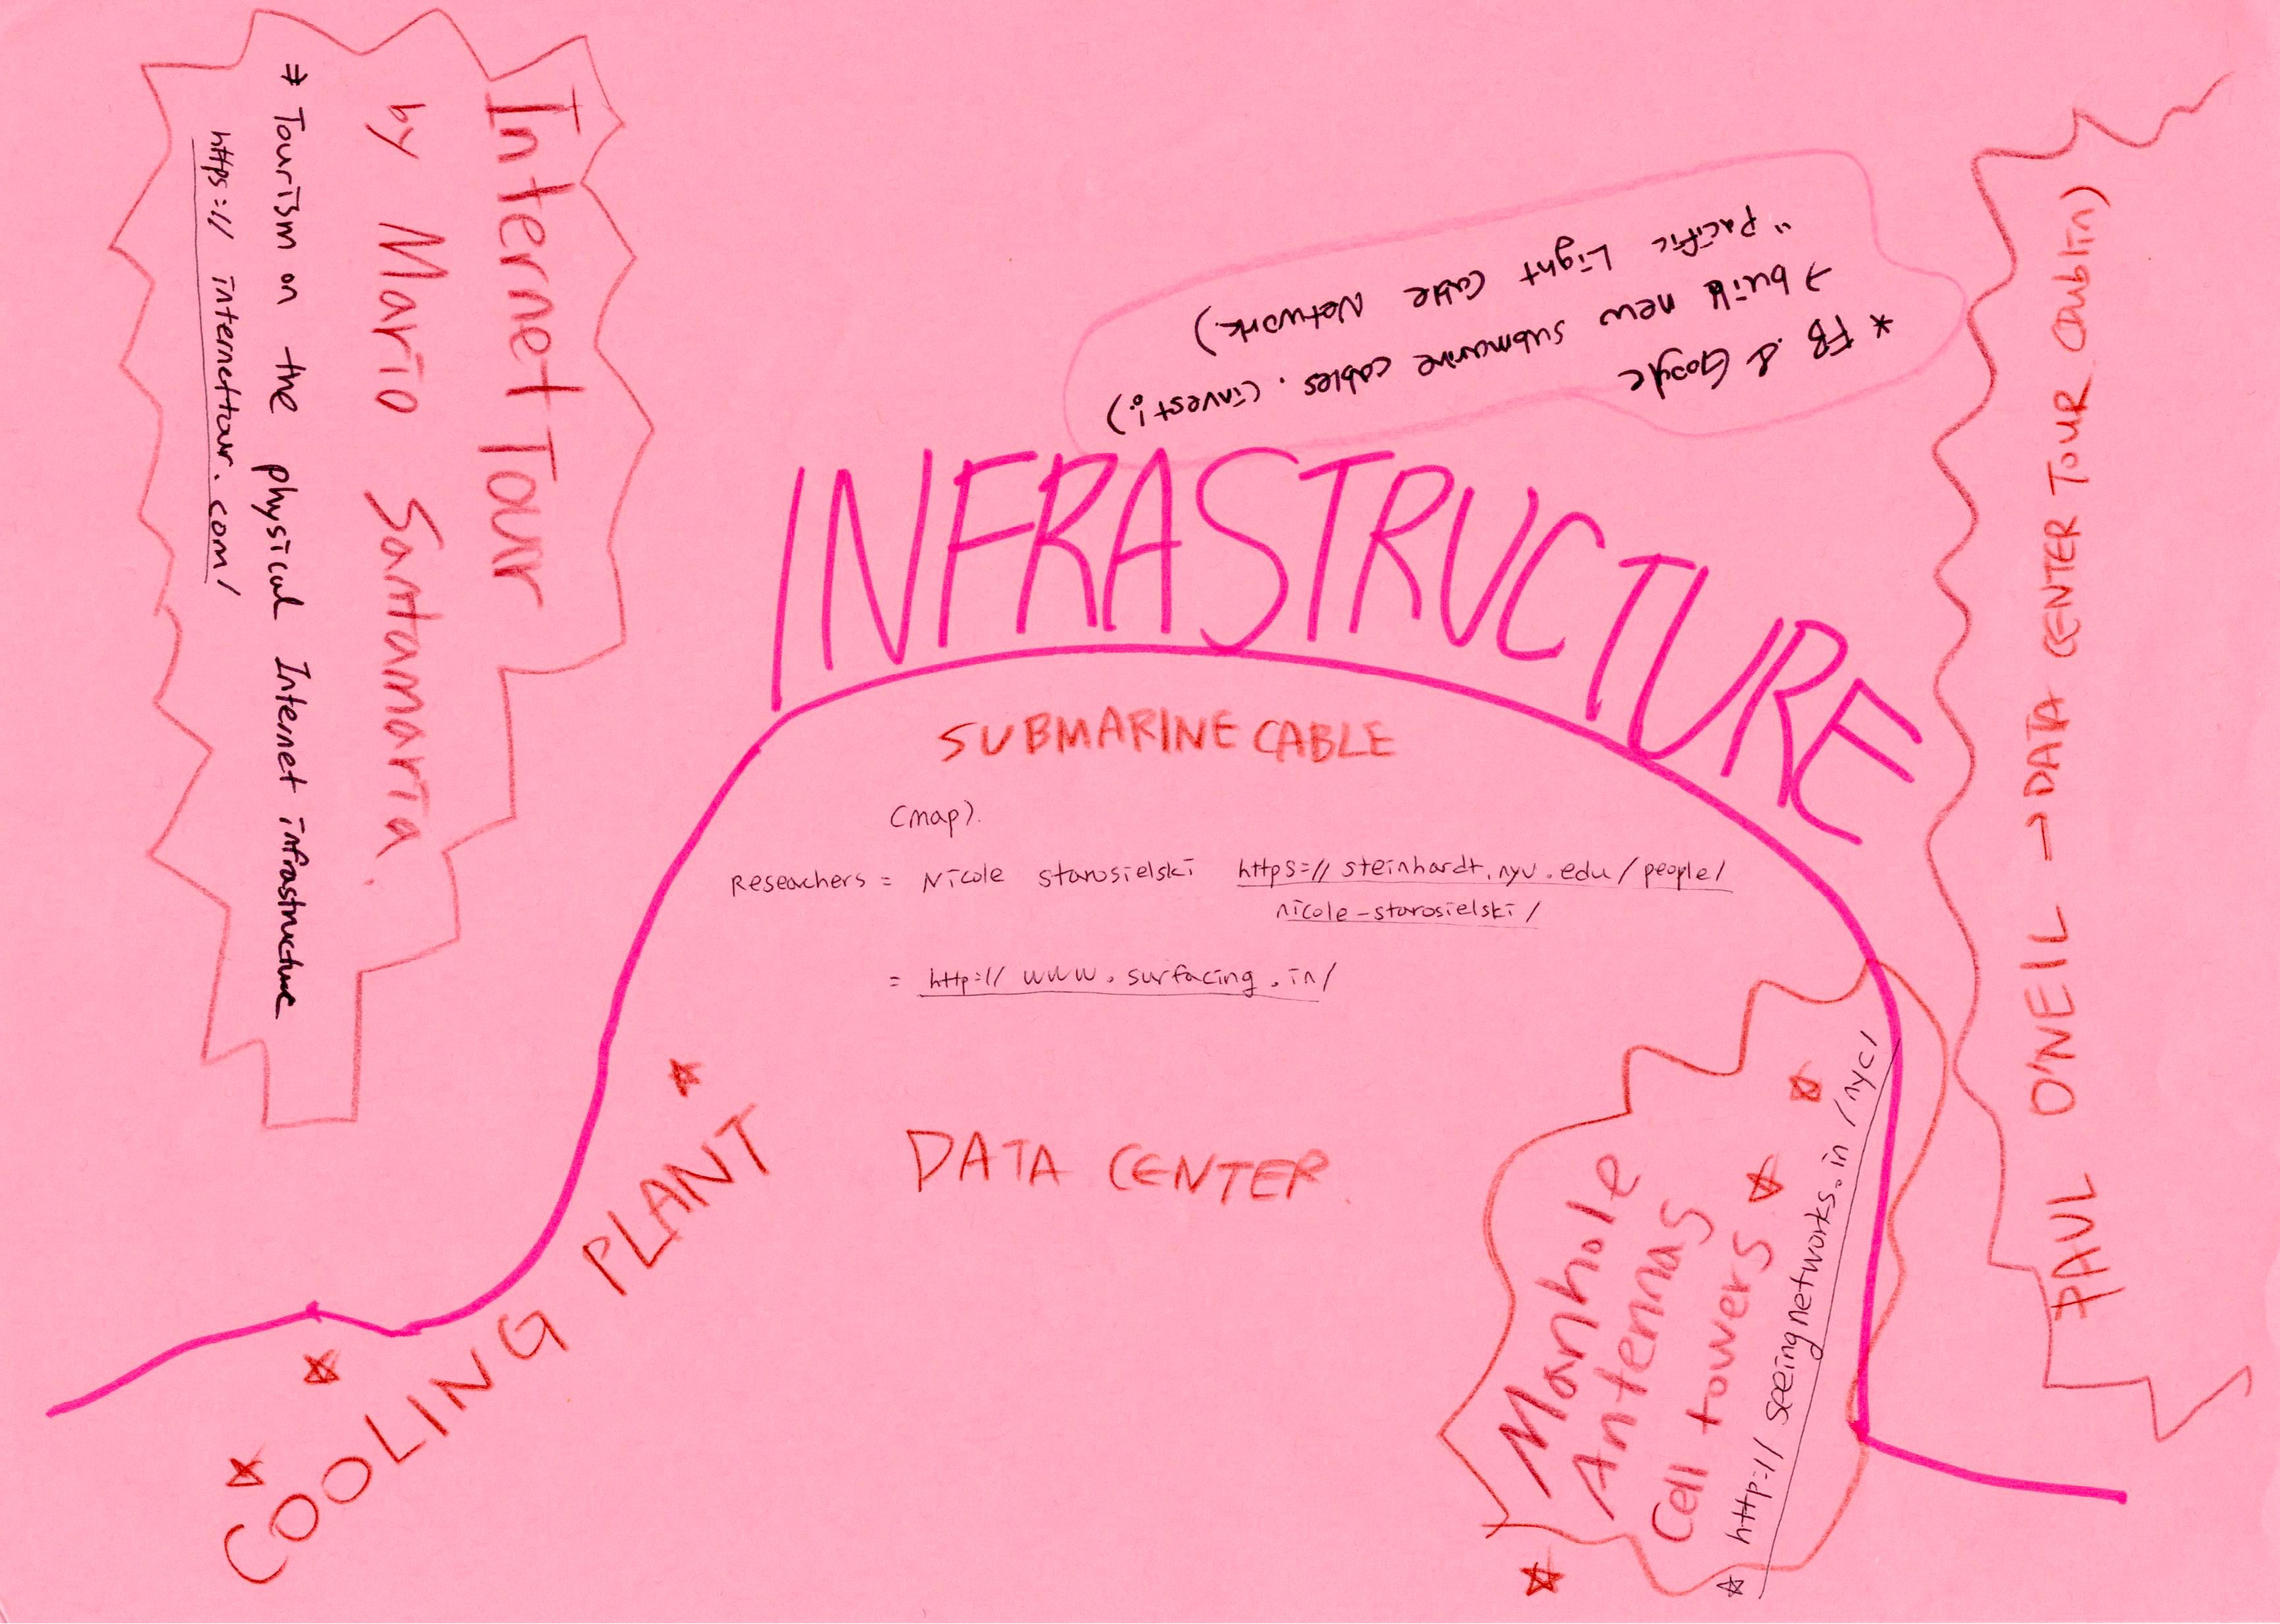 Internet Tour
by Mario Santamaria.
⇒ Tourism on the physical Internet infrastructure
https:// internettour.com/
* FB & Google
→ build new submarine cables. (invest!)
"Pacific Light Cable Network)
INFRASTRUCTURE
SUBMARINE CABLE
(map).
Researchers = Nicole starosielski https://steinhardt.nyu.edu/people/
nicole-starosielski/
= http://www.surfacing.in/
DATA CENTER.
COOLING PLANT
Manhole
Antennas
Cell towers
☆ http://seeingnetworks.in/nyc/
PAUL O'NEIL → DATA CENTER TOUR (Dublin)